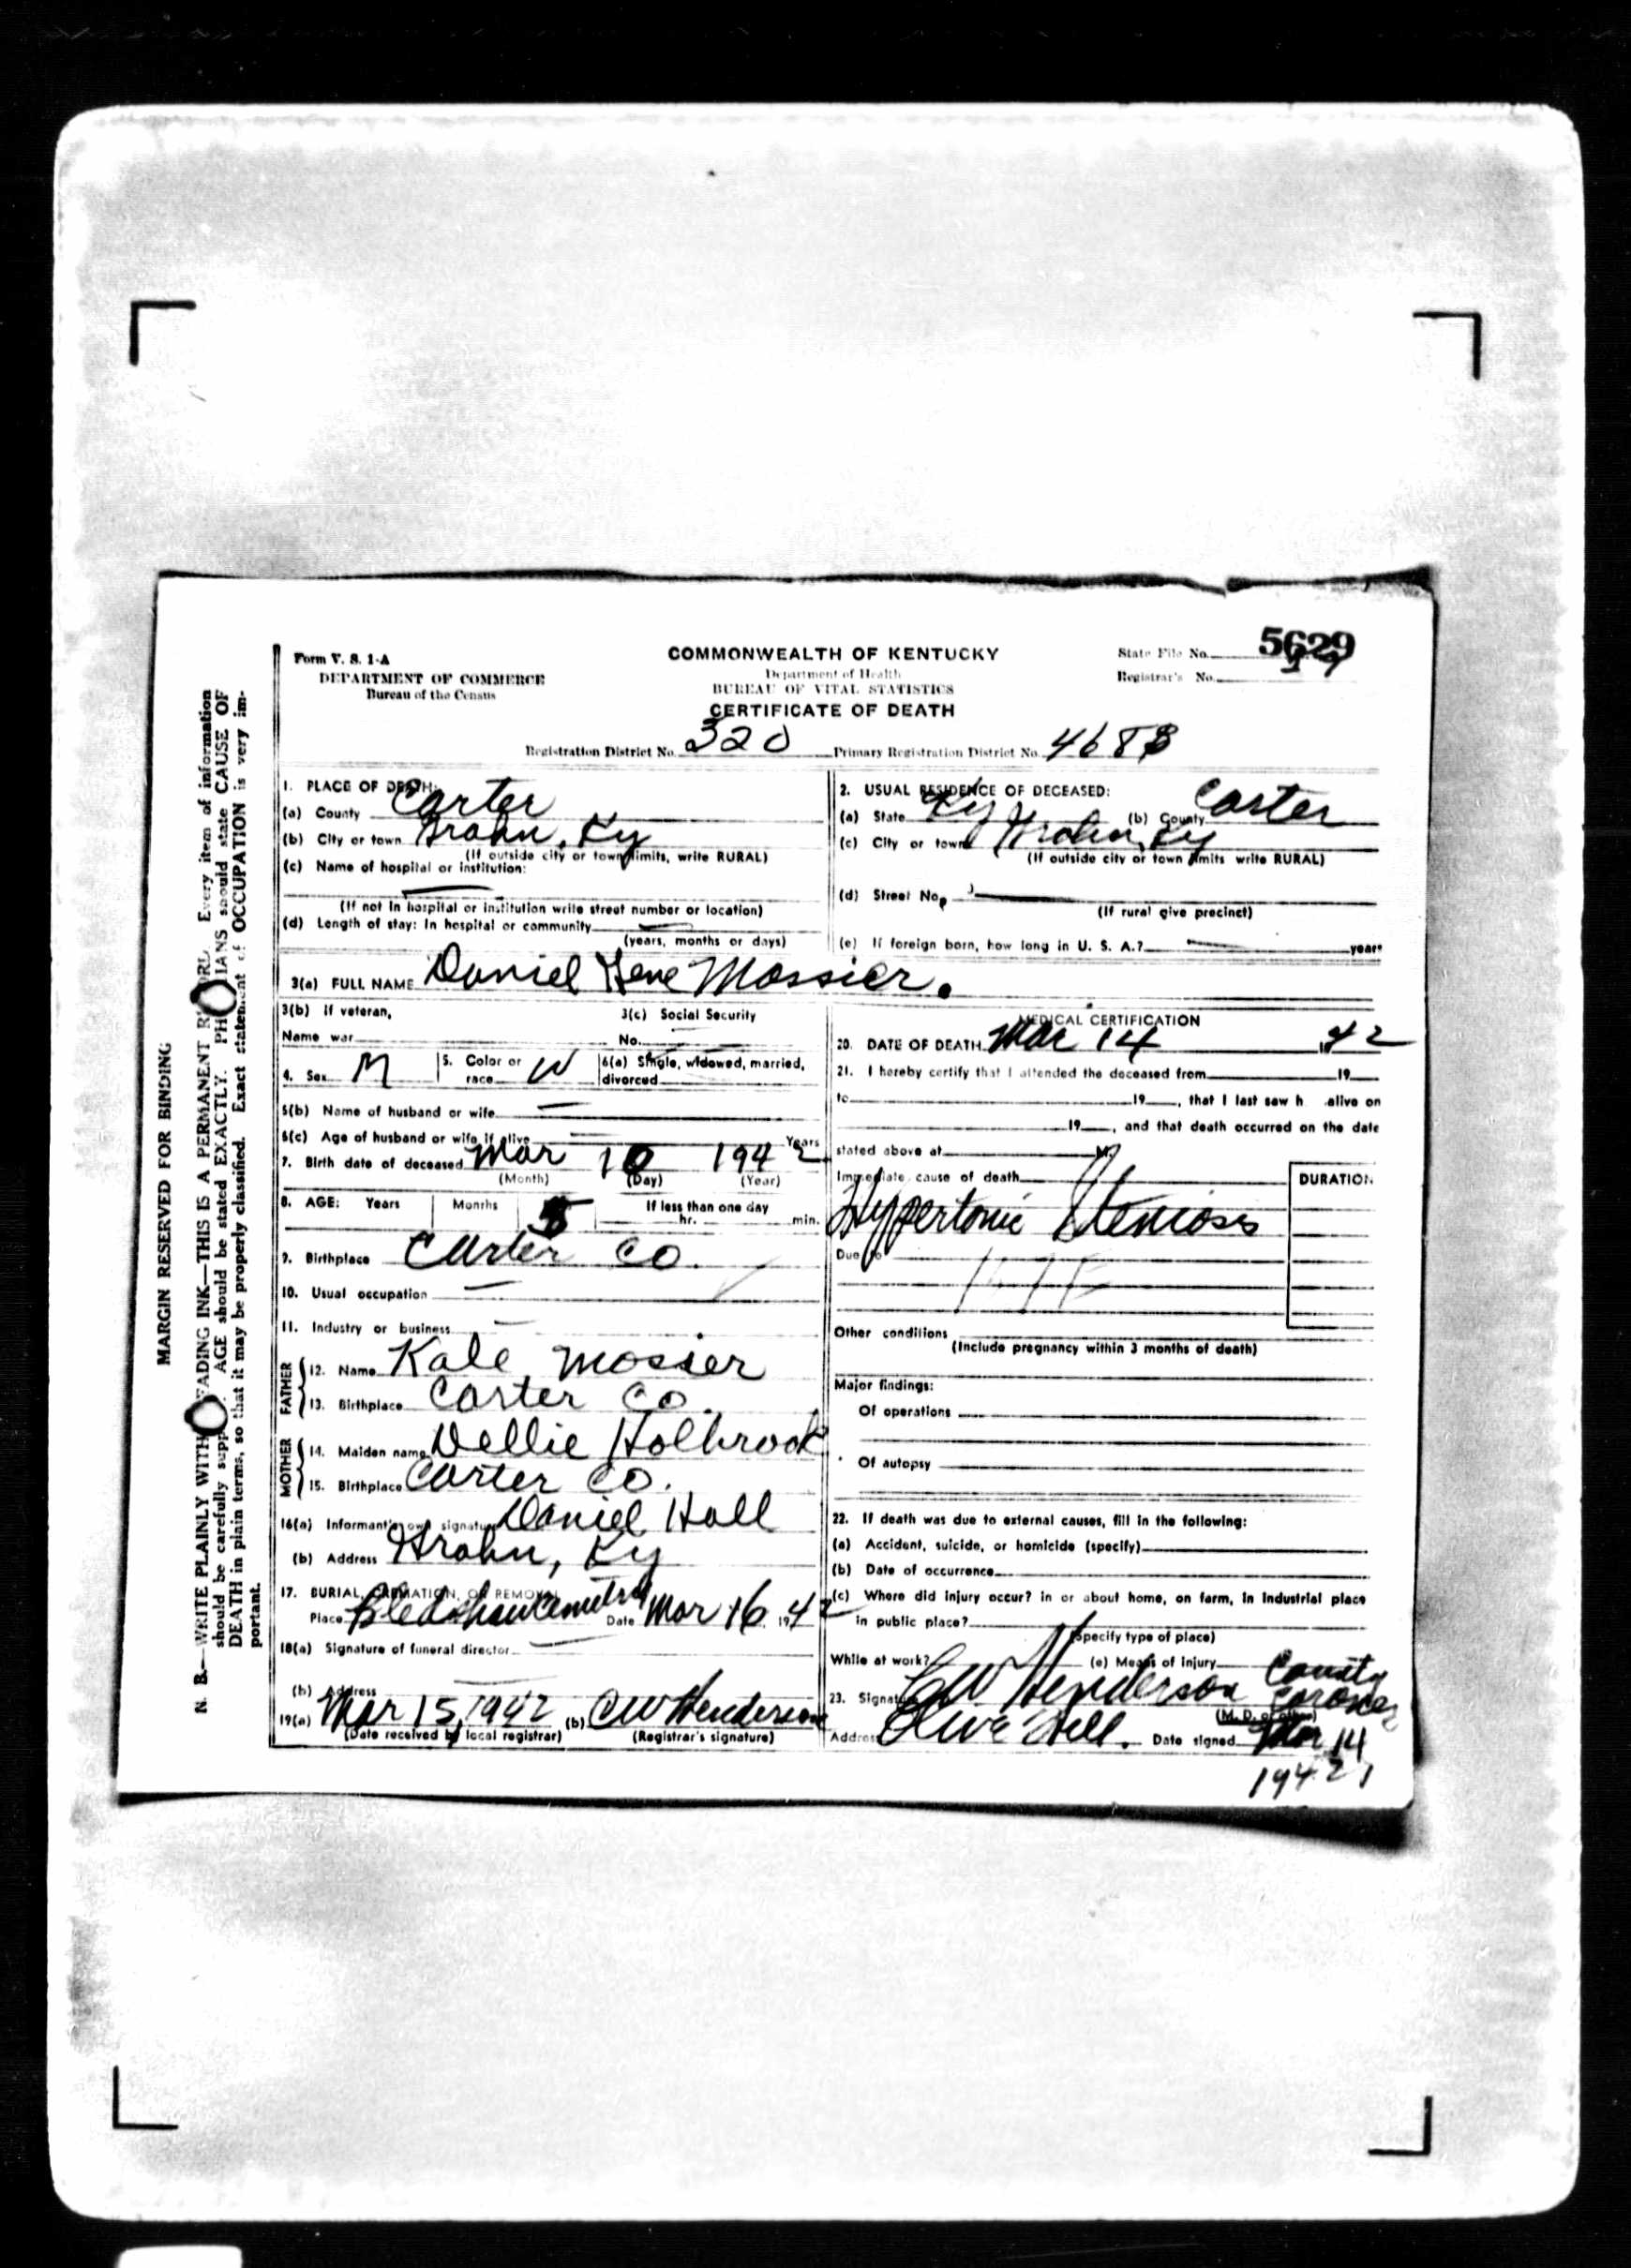 Form V. S. 1-A
DEPARTMENT OF COMMERCE
Bureau of the Census
COMMONWEALTH OF KENTUCKY
Department of Health
BUREAU OF VITAL STATISTICS
CERTIFICATE OF DEATH
State File No. 5629
Registrar's No.
Registration District No. 320 Primary Registration District No. 468
MARGIN RESERVED FOR BINDING
N. B.—WRITE PLAINLY WITH FADING INK—THIS IS A PERMANENT Every item of information
should be carefully AGE should be stated EXACTLY. should state CAUSE OF
DEATH in plain terms, so that it may be properly classified. Exact statement of OCCUPATION is very im-
portant.
1. PLACE OF DEATH:
(a) County Carter
(b) City or town Grahn, Ky
(If outside city or town limits, write RURAL)
(c) Name of hospital or institution:
(If not in hospital or institution write street number or location)
(d) Length of stay: In hospital or community
(years, months or days)
2. USUAL RESIDENCE OF DECEASED:
(a) State Ky (b) County Carter
(c) City or town Grahn, Ky
(If outside city or town limits write RURAL)
(d) Street No.
(If rural give precinct)
(e) If foreign born, how long in U. S. A.? years
3(a) FULL NAME Daniel Gene Mossier.
3(b) If veteran,
Name war
3(c) Social Security
No.
4. Sex M 5. Color or race W 6(a) Single, widowed, married, divorced
5(b) Name of husband or wife
5(c) Age of husband or wife if alive Years
7. Birth date of deceased Mar 10 1942
(Month) (Day) (Year)
8. AGE: Years Months 5 If less than one day
hr. min.
9. Birthplace Carter Co.
10. Usual occupation
11. Industry or business
FATHER
12. Name Kale Mosier
13. Birthplace Carter Co.
MOTHER
14. Maiden name Dellie Holbrook
15. Birthplace Carter Co.
16(a) Informant's own signature Daniel Hall
(b) Address Grahn, Ky
17. BURIAL, CREMATION, OR REMOVAL
Place Date Mar 16 1942
18(a) Signature of funeral director
(b) Address
19(a) Mar 15, 1942 (b) CW Henderson
(Date received by local registrar) (Registrar's signature)
MEDICAL CERTIFICATION
20. DATE OF DEATH Mar 14 42
21. I hereby certify that I attended the deceased from 19
to 19 , that I last saw h alive on
19 , and that death occurred on the date
stated above at M.
Immediate cause of death
DURATION
Hypertonic Stenioses
Due to
Other conditions
(Include pregnancy within 3 months of death)
Major findings:
Of operations
Of autopsy
22. If death was due to external causes, fill in the following:
(a) Accident, suicide, or homicide (specify)
(b) Date of occurrence
(c) Where did injury occur? in or about home, on farm, in industrial place
in public place?
(specify type of place)
While at work? (e) Means of injury
23. Signature CW Henderson County Coroner
(M. D. or other)
Address Olive Hill. Date signed Mar 14
1942